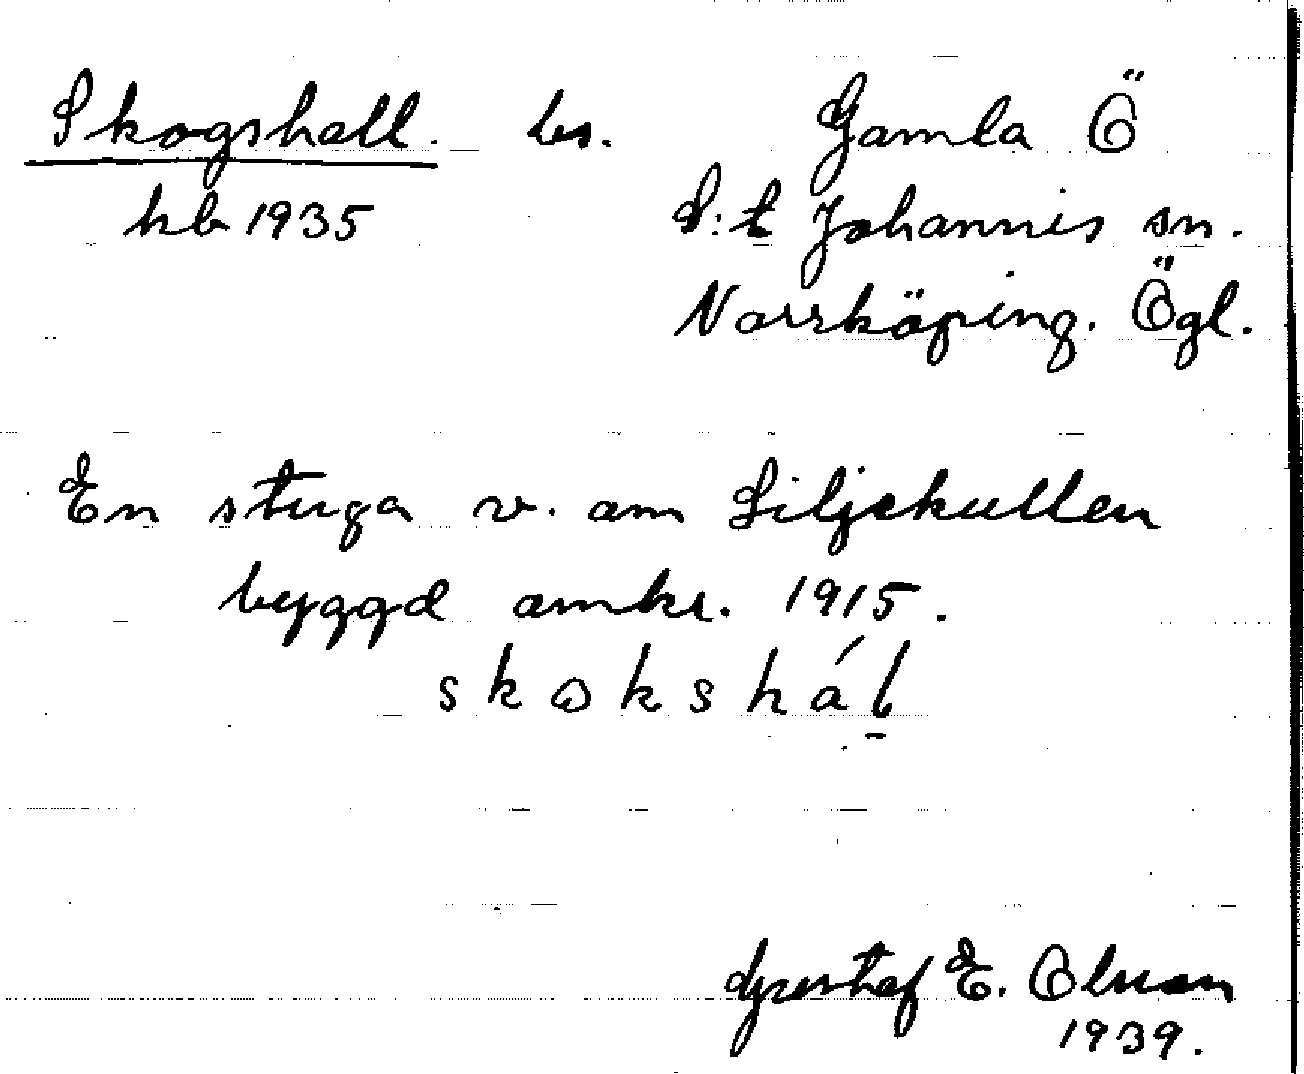 Skogshall. bs. Gamla Ö
hb 1935 S:t Johannis sn.
Norrköping. Ögl.
En stuga v. om Liljekullen
byggd omkr. 1915.
skωkshál̠
Gustaf E. Olsson
1939.